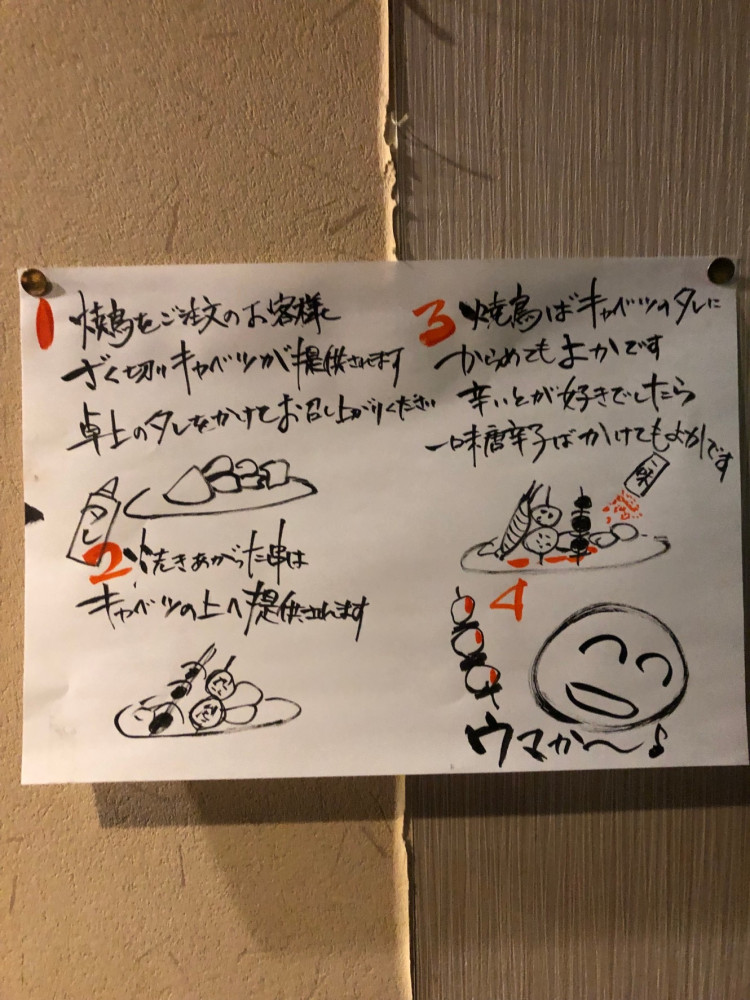 1 焼鳥をご注文のお客様に
ざく切りキャベツが提供されます
卓上のタレをかけてお召し上がりください
タレ
2 焼きあがった串は
キャベツの上へ提供されます
3 焼鳥ばキャベツのタレに
からめてもよかです
辛いとが好きでしたら
一味唐辛子ばかけてもよかです
一味
4
ウマか〜♪